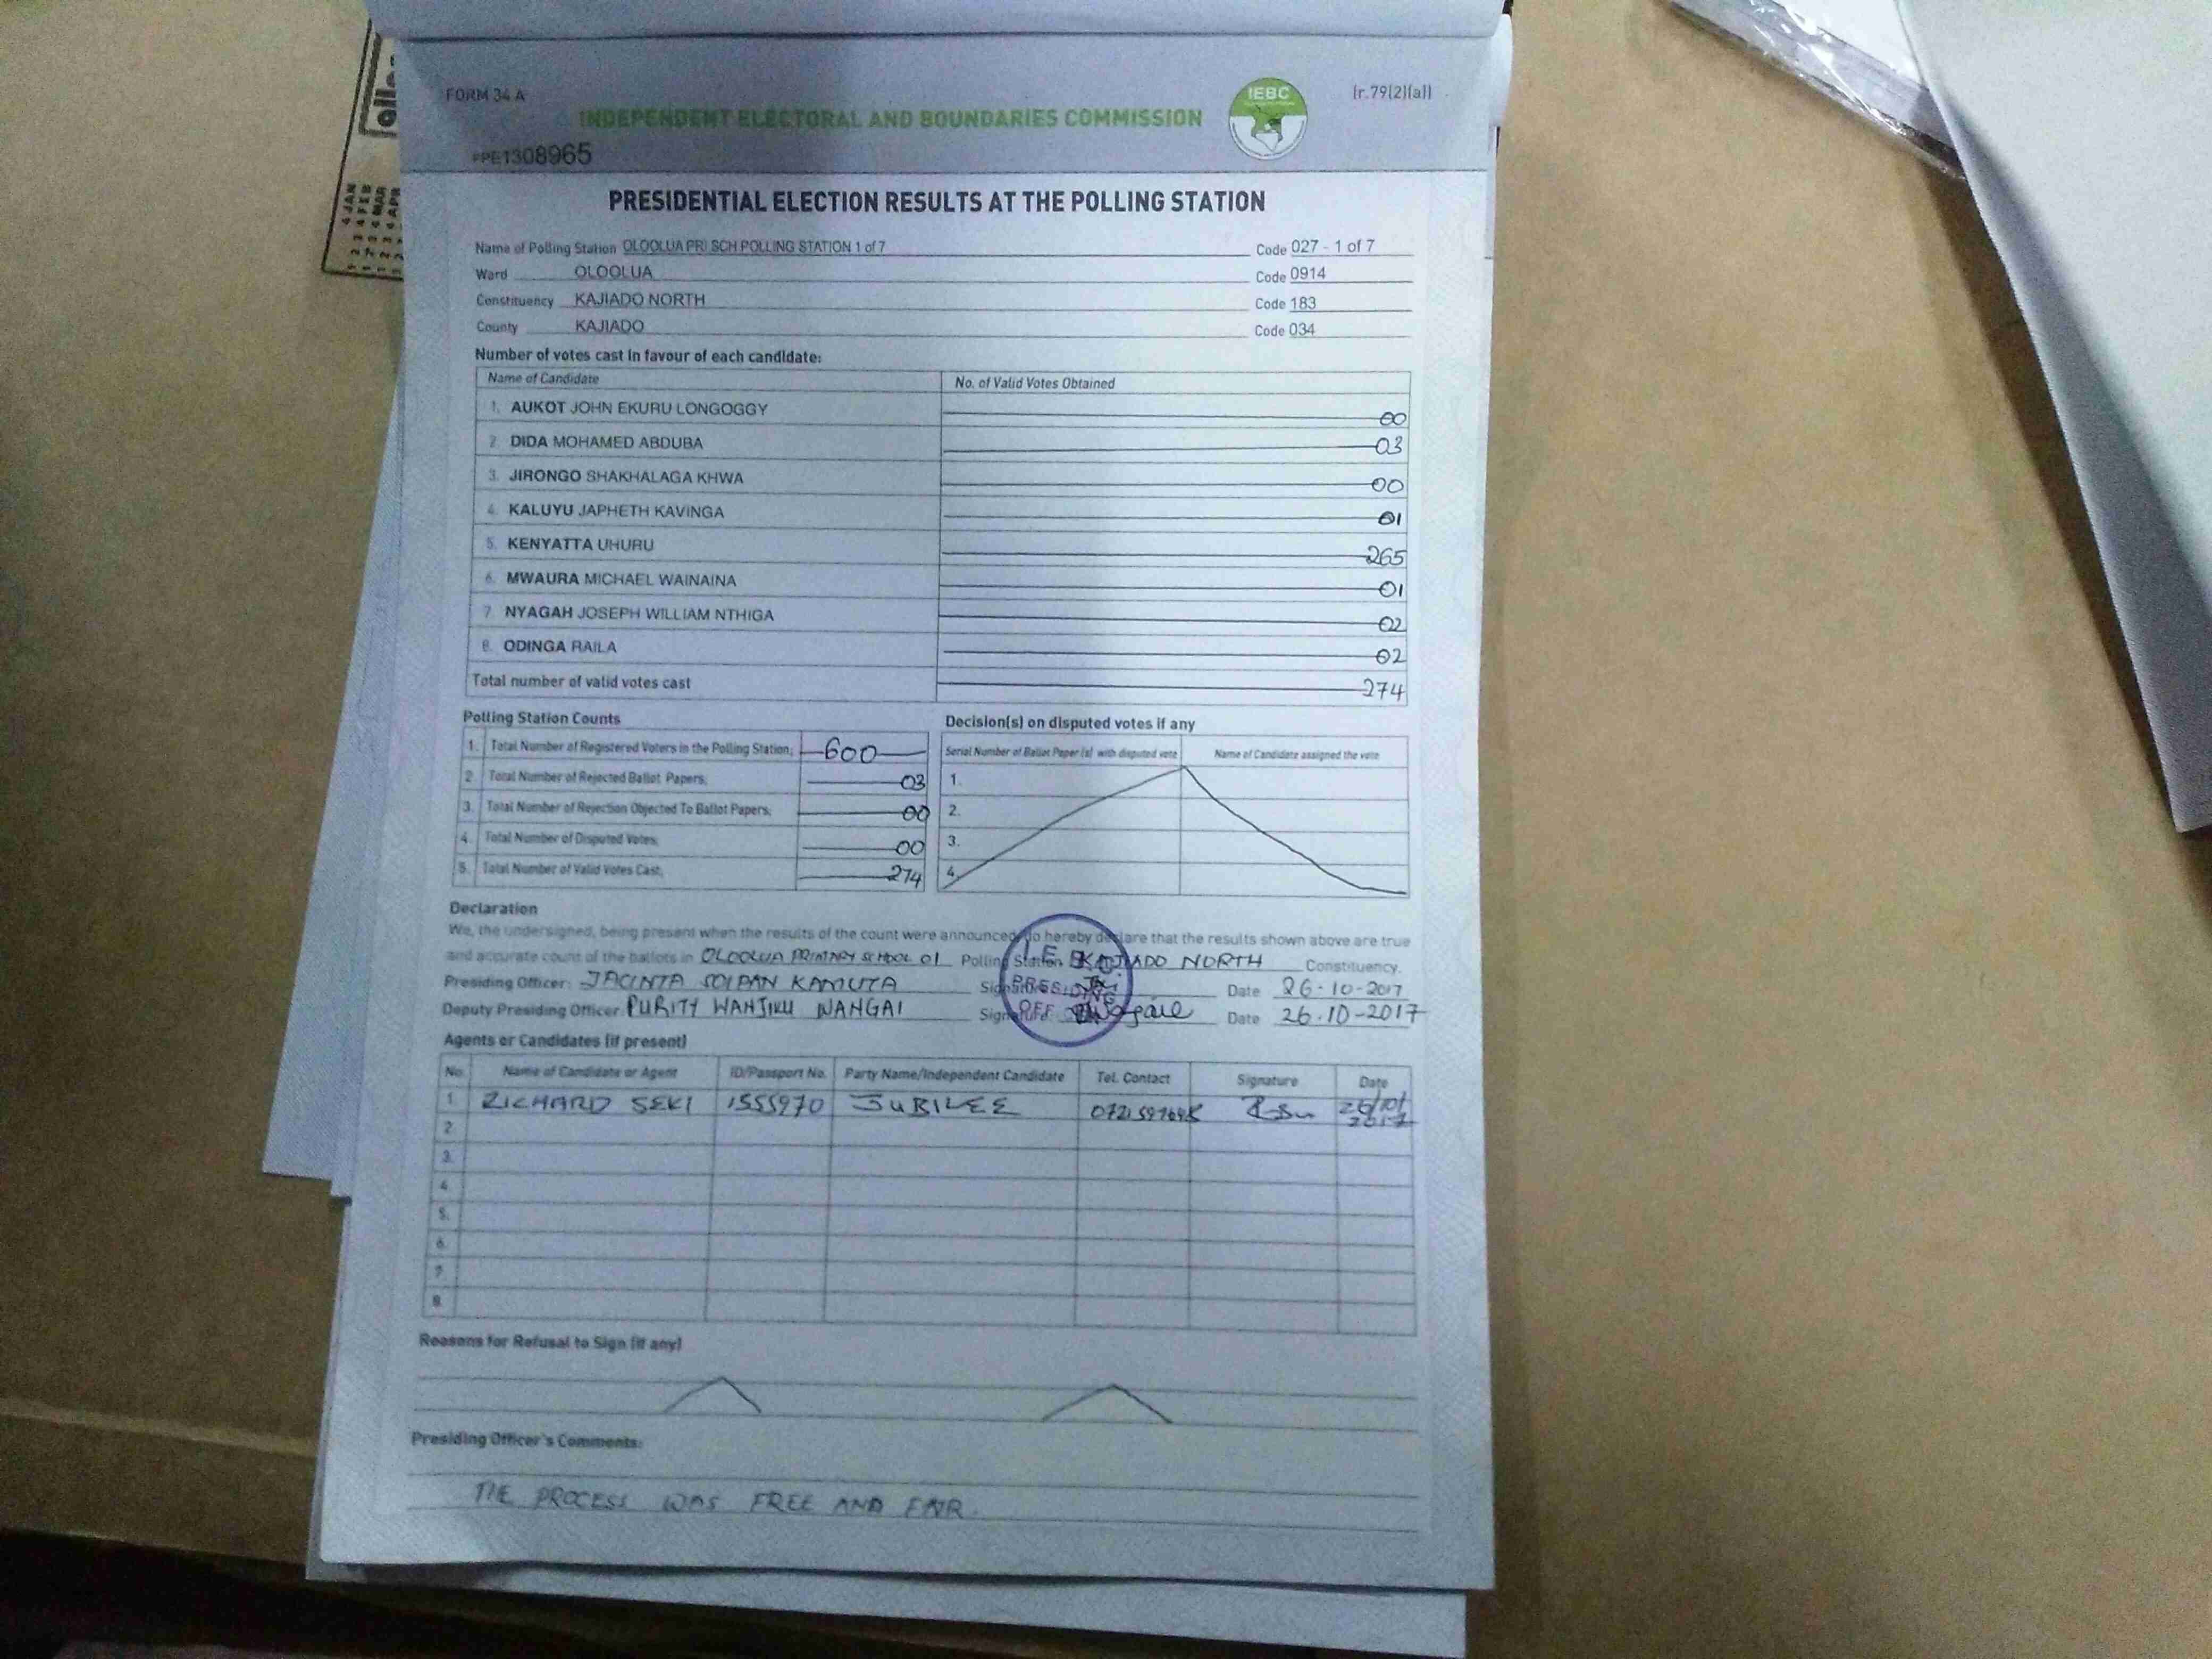 FORM 34 A
(r.79(2)(a))
INDEPENDENT ELECTORAL AND BOUNDARIES COMMISSION
IEBC
PPE1308965
PRESIDENTIAL ELECTION RESULTS AT THE POLLING STATION
Name of Polling Station OLOOLUA PRI SCH POLLING STATION 1 of 7 Code 027 - 1 of 7
Ward OLOOLUA Code 0914
Constituency KAJIADO NORTH Code 183
County KAJIADO Code 034
Number of votes cast in favour of each candidate:
Name of Candidate No. of Valid Votes Obtained
1. AUKOT JOHN EKURU LONGOGGY 00
2. DIDA MOHAMED ABDUBA 03
3. JIRONGO SHAKHALAGA KHWA 00
4. KALUYU JAPHETH KAVINGA 01
5. KENYATTA UHURU 265
6. MWAURA MICHAEL WAINAINA 01
7. NYAGAH JOSEPH WILLIAM NTHIGA 02
8. ODINGA RAILA 02
Total number of valid votes cast 274
Polling Station Counts
1. Total Number of Registered Voters in the Polling Station; 600
2. Total Number of Rejected Ballot Papers; 03
3. Total Number of Rejection Objected To Ballot Papers; 00
4. Total Number of Disputed Votes; 00
5. Total Number of Valid Votes Cast; 274
Decision(s) on disputed votes if any
Serial Number of Ballot Paper (s) with disputed vote Name of Candidate assigned the vote
1.
2.
3.
4.
Declaration
We, the undersigned, being present when the results of the count were announced, do hereby declare that the results shown above are true
and accurate count of the ballots in OLOOLUA PRIMARY SCHOOL 01 Polling Station KAJIADO NORTH Constituency.
Presiding Officer: JACINTA SOIPAN KAMUTA Signature: Date 26-10-2017
Deputy Presiding Officer: PURITY WANJIKU WANGAI Signature: Date 26.10-2017
Agents or Candidates (if present)
No. Name of Candidate or Agent ID/Passport No. Party Name/Independent Candidate Tel. Contact Signature Date
1. RICHARD SEKI 1555970 JUBILEE 26/10/
2017
2.
3.
4.
5.
6.
7.
8.
Reasons for Refusal to Sign (if any)
Presiding Officer's Comments:
THE PROCESS WAS FREE AND FAIR.
4 JAN
4 FEB
4 MAR
4 APR